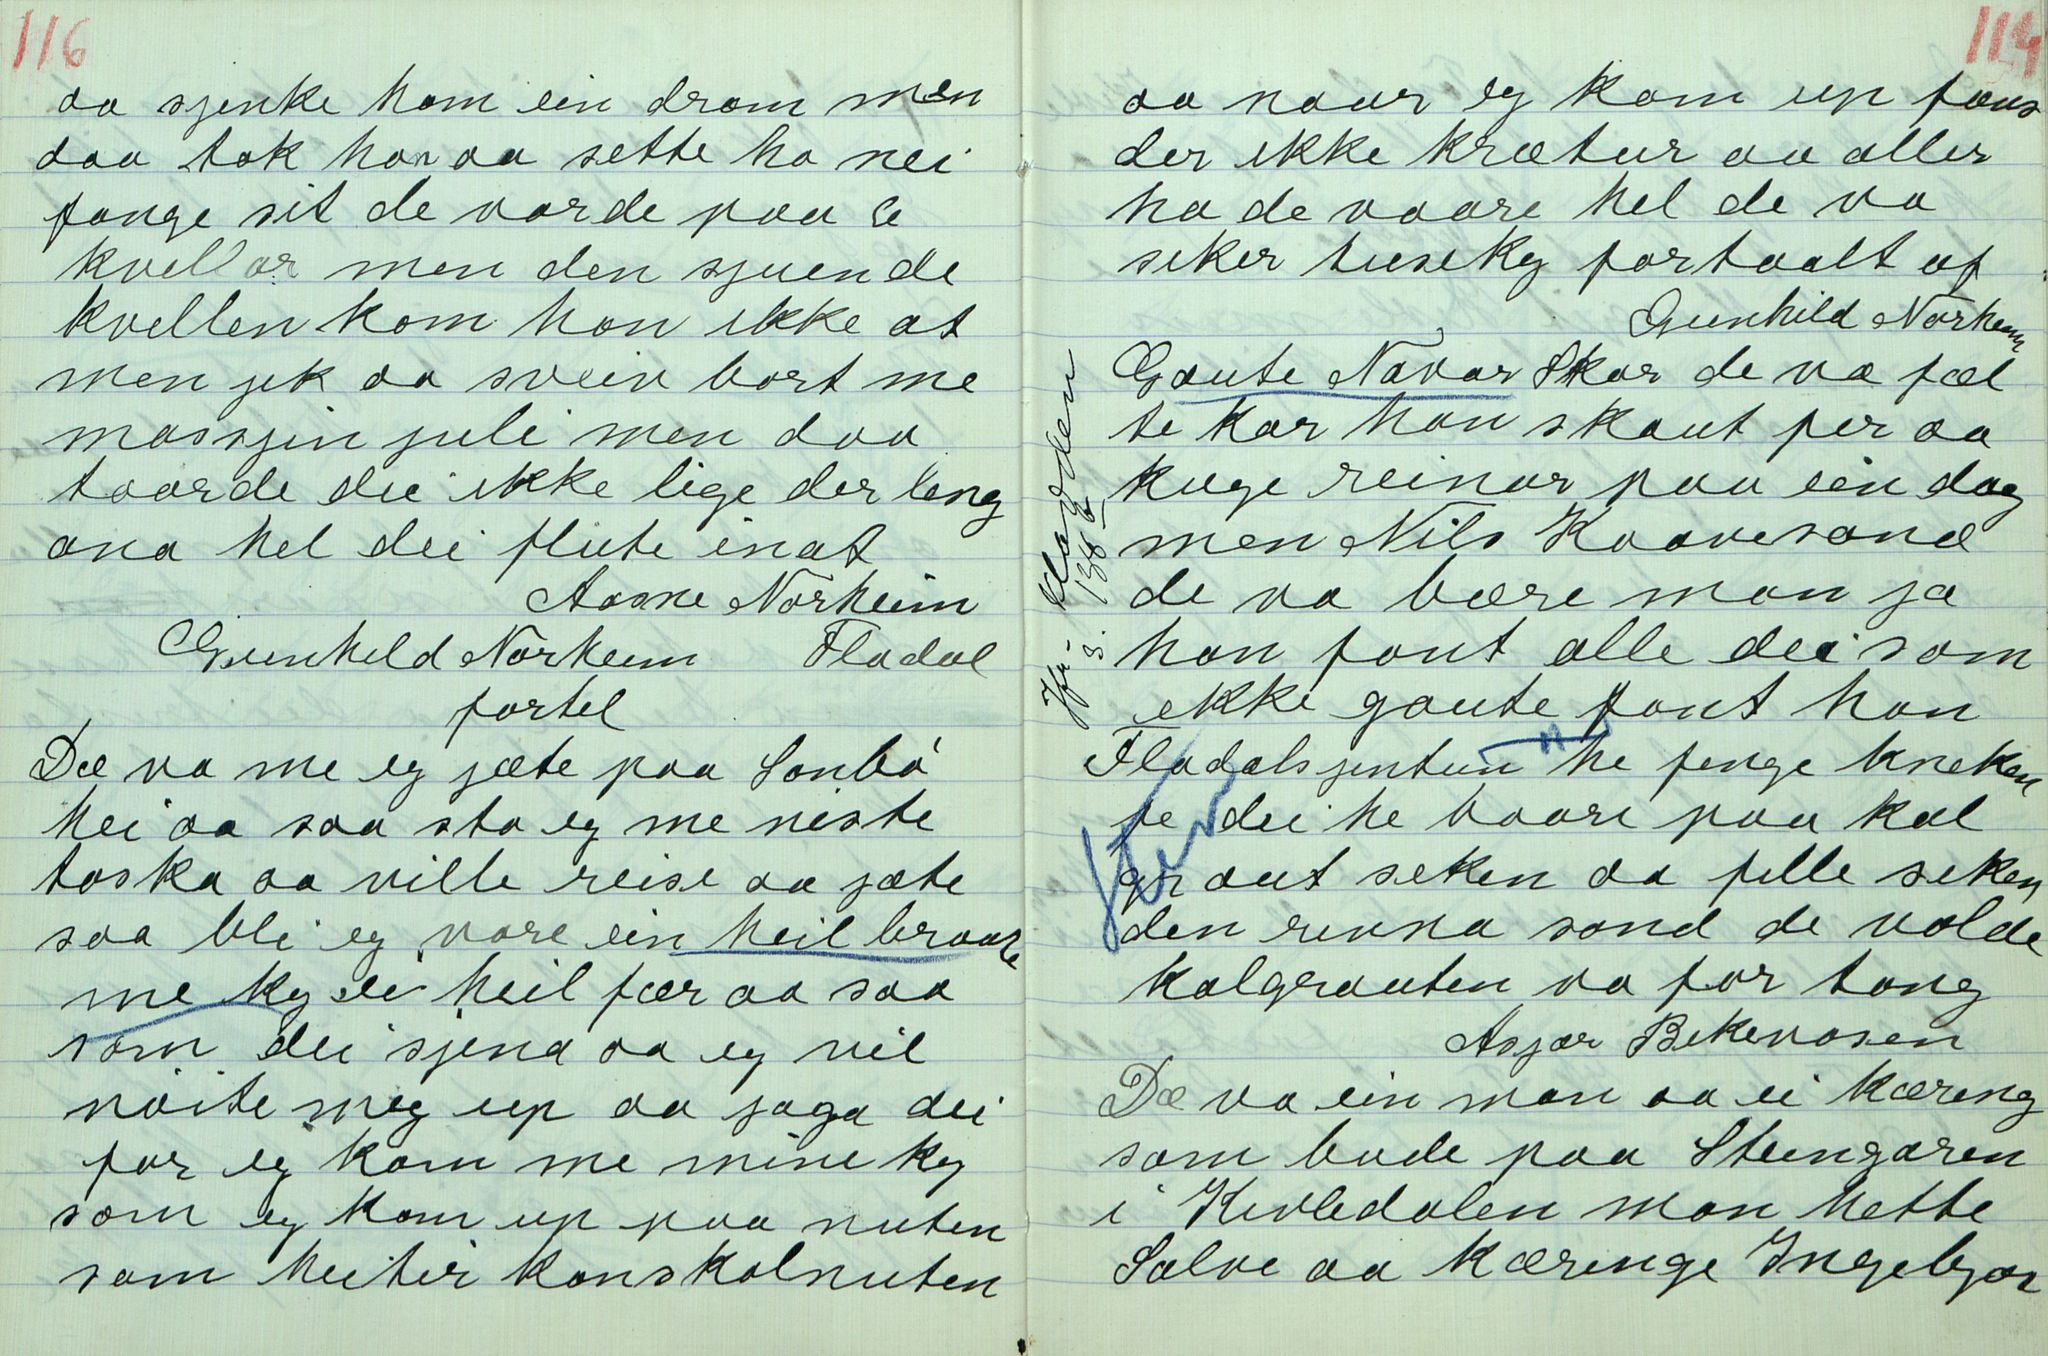 116
aa sjenke ham ein dram men
daa tok han aa sette ho nei
fange sit de varde paa se
kvellar men den sjuende
kvellen kom han ikke at
men jek aa svein bort me
massjin juli men daa
toorde dei ikke lige der leng
ana hel dei flute inat
Aasne Norheim
Gunhild Norheim Fladal
fortel
Dæ va me eg jæte paa Sonbó
hei aa saa sto eg me niste
taska aa ville reise aa jæte
saa bli eg vare ein heil braate
me ky ei heil fær aa saa
som dei sjena aa eg vil
nöite meg up aa jaga dei
for eg kom me mine ky
som eg kom up paa nuten
som heiter kanskolnuten
114
aa naar eg kom up fans
der ikke krætur aa aller
ha de vaare hel de va
seker tuseky fortaalt af
Gunhild Norheim
Gaute Navar Skar de va fæl
te kar han skaut fir aa
kuge reinar paa ein dag
men Nils Kaavesand
de va bære man ja
han fant alle dei som
ikke gaute fant han
Fladalsjentun he finge kneken
te dei he baare paa kal
graut seken aa fille seken
den revna sond de volde
kalgrauten va for tong
Asjær Bekevasen
Dæ va ein man aa ei kæring
som bude paa Steingaren
i Kivledalen man hette
Salve aa kæringe Ingebjær